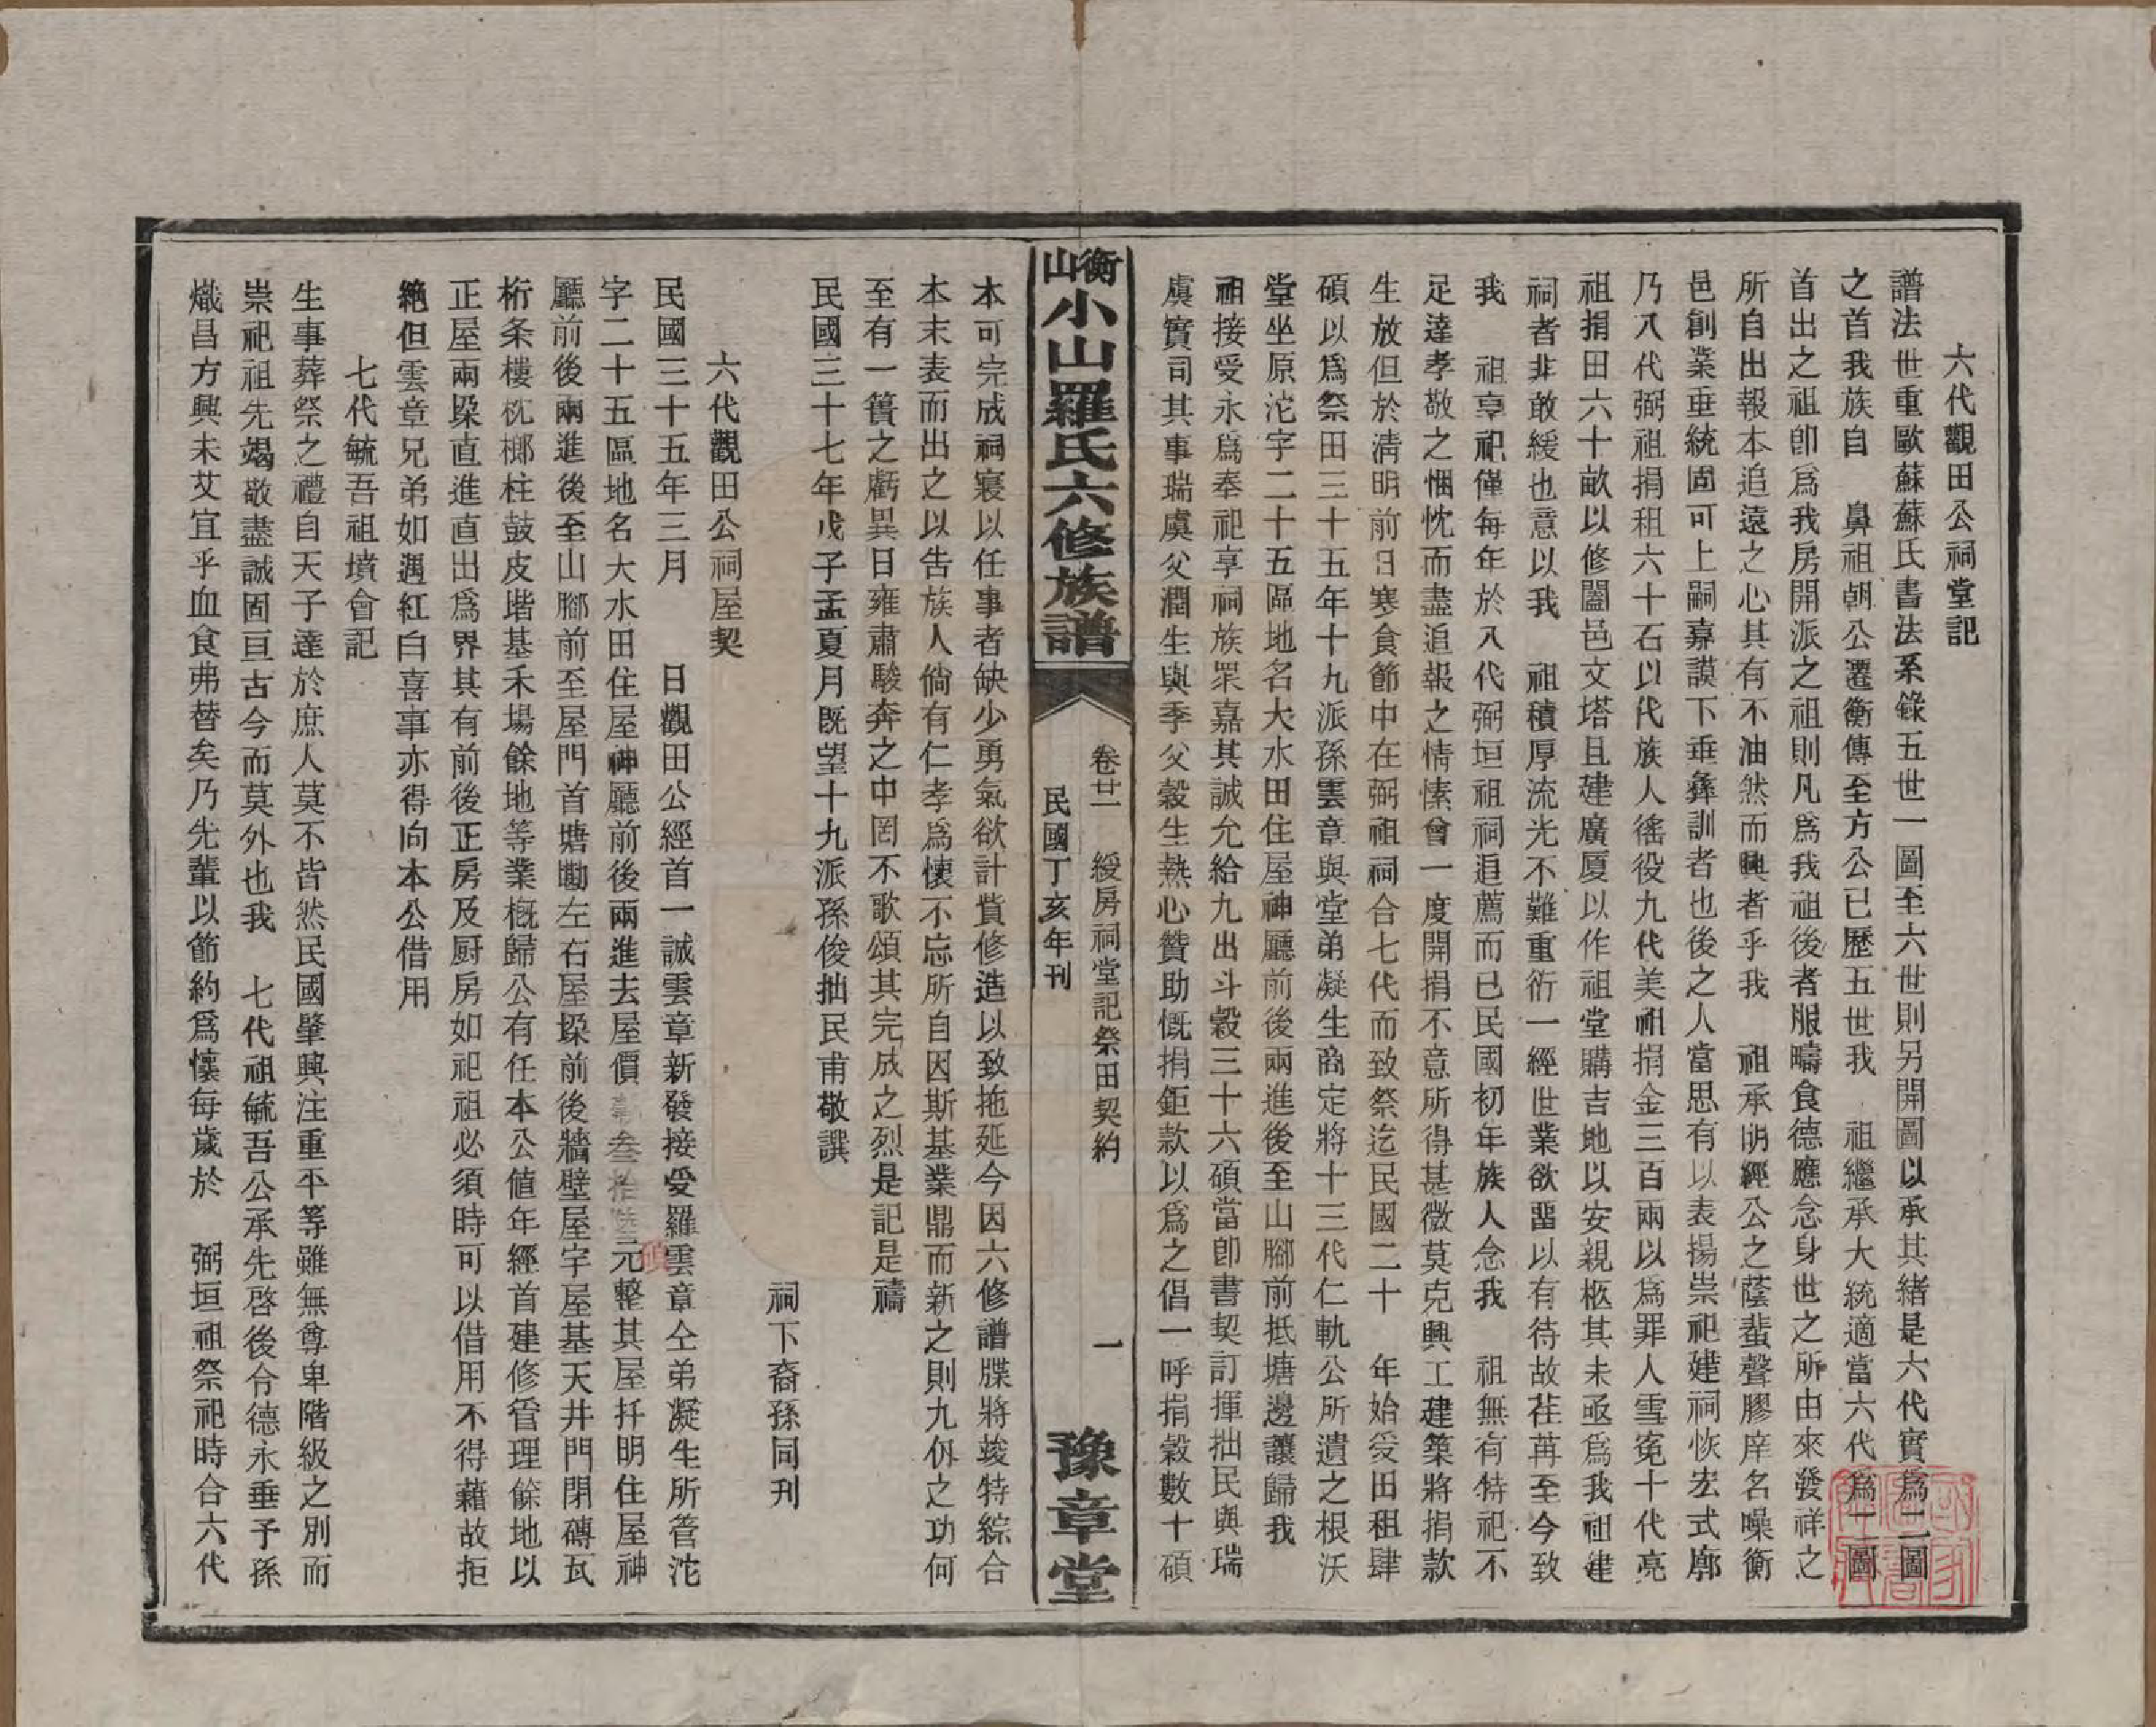 六代觀田公祠堂記
譜法世重歐蘇蘇氏書法系錄五世一圖至六世則另開圖以承其緒是六代實爲二圖
之首我族自　鼻祖朝公遷衡傳至方公已歷五世我　祖繼承大統適當六代爲一圖
首出之祖卽爲我房開派之祖則凡爲我祖後者服疇食德應念身世之所由來發祥之
所自出報本追遠之心其有不油然而興者乎我　祖承明經公之蔭蜚聲膠庠名噪衡
邑創業垂統固可上嗣嘉謨下垂彝訓者也後之人當思有以表揚崇祀建祠恢宏式廓
乃八代弼祖捐租六十石以代族人徭役九代美祖捐金三百兩以爲罪人雪寃十代亮
祖捐田六十畝以修闔邑文塔且建廣厦以作祖堂購吉地以安親柩其未亟爲我祖建
祠者非敢緩也意以我　祖積厚流光不難重衍一經世業欲畱以有待故荏苒至今致
我　祖享祀僅每年於八代弼垣祖祠追薦而已民國初年族人念我　祖無有特祀不
足達孝敬之悃忱而盡追報之情愫曾一度開捐不意所得甚微莫克興工建築將捐款
生放但於淸明前日寒食節中在弼祖祠合七代而致祭迄民國二十　年始受田租肆
碩以爲祭田三十五年十九派孫雲章與堂弟凝生商定將十三代仁軌公所遺之根沃
堂坐原沱字二十五區地名大水田住屋神廳前後兩進後至山腳前抵塘邊讓歸我
祖接受永爲奉祀享祠族眾嘉其誠允給九出斗穀三十六碩當卽書契訂揮拙民與瑞
虞實司其事瑞虞父潤生與季父穀生熱心贊助慨捐鉅款以爲之倡一呼捐穀數十碩
衡山小山羅氏六修族譜
卷廿一　綬房祠堂記祭田契約　一
民國丁亥年刊
豫章堂
本可完成祠寢以任事者缺少勇氣欲計貲修造以致拖延今因六修譜牒將竣特綜合
本末表而出之以告族人倘有仁孝爲懷不忘所自因斯基業鼎而新之則九仞之功何
至有一簣之虧異日雍肅駿奔之中罔不歌頌其完成之烈是記是禱
民國三十七年戊子孟夏月既望十九派孫俊拙民甫敬譔
祠下裔孫同刊
六代觀田公祠屋契
民國三十五年三月　　日觀田公經首一誠雲章新發接受羅雲章仝弟凝生所管沱
字二十五區地名大水田住屋神廳前後兩進去屋價叁拾陸元整其屋扦明住屋神
廳前後兩進後至山腳前至屋門首塘墈左右屋垜前後牆壁屋宇屋基天井門閉磚瓦
桁条樓枕榔柱鼓皮堦基禾場餘地等業槪歸公有任本公値年經首建修管理餘地以
正屋兩垜直進直出爲界其有前後正房及厨房如祀祖必須時可以借用不得藉故拒
絶但雲章兄弟如遇紅白喜事亦得向本公借用
七代毓吾祖墳會記
生事葬祭之禮自天子達於庶人莫不皆然民國肇興注重平等雖無尊卑階級之別而
崇祀祖先竭敬盡誠固亘古今而莫外也我　七代祖毓吾公承先啓後令德永垂予孫
熾昌方興未艾宜乎血食弗替矣乃先輩以節約爲懷每歲於　弼垣祖祭祀時合六代